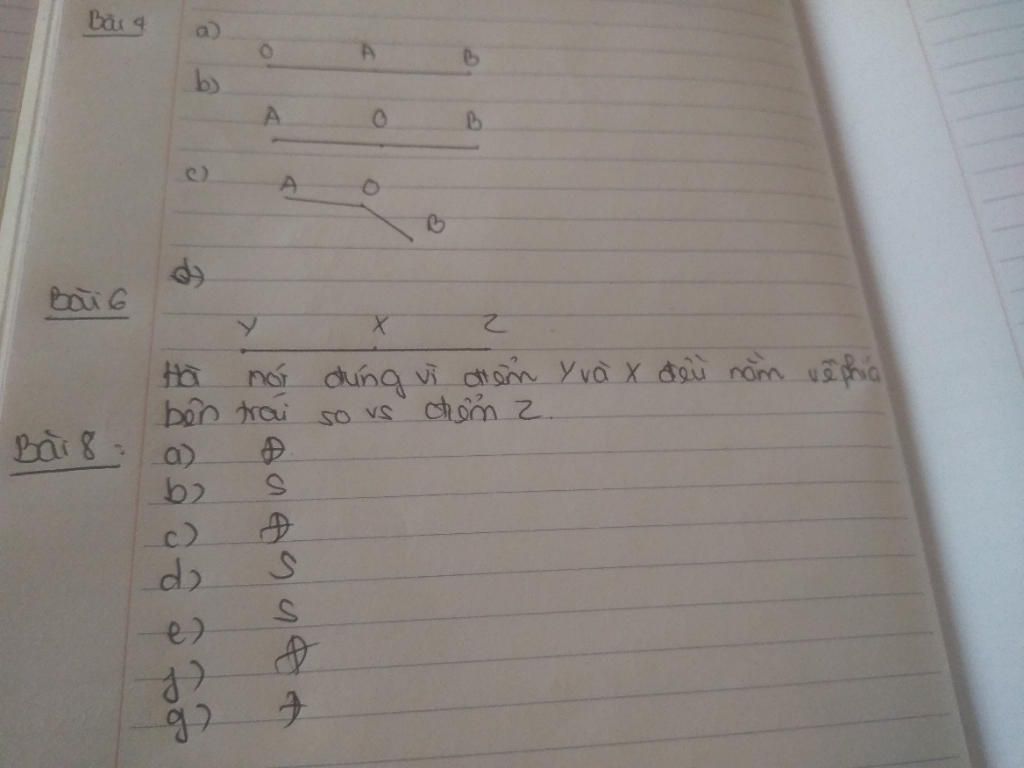 Bài 4
a)
O A B
b)
A O B
c)
A O
B
d)
Bài 6
Y X Z
Hà nói đúng vì điểm Y và X đều nằm về phía
bên trái so vs điểm Z.
Bài 8:
a) Đ
b) S
c) Đ
d) S
e) S
f) Đ
g)